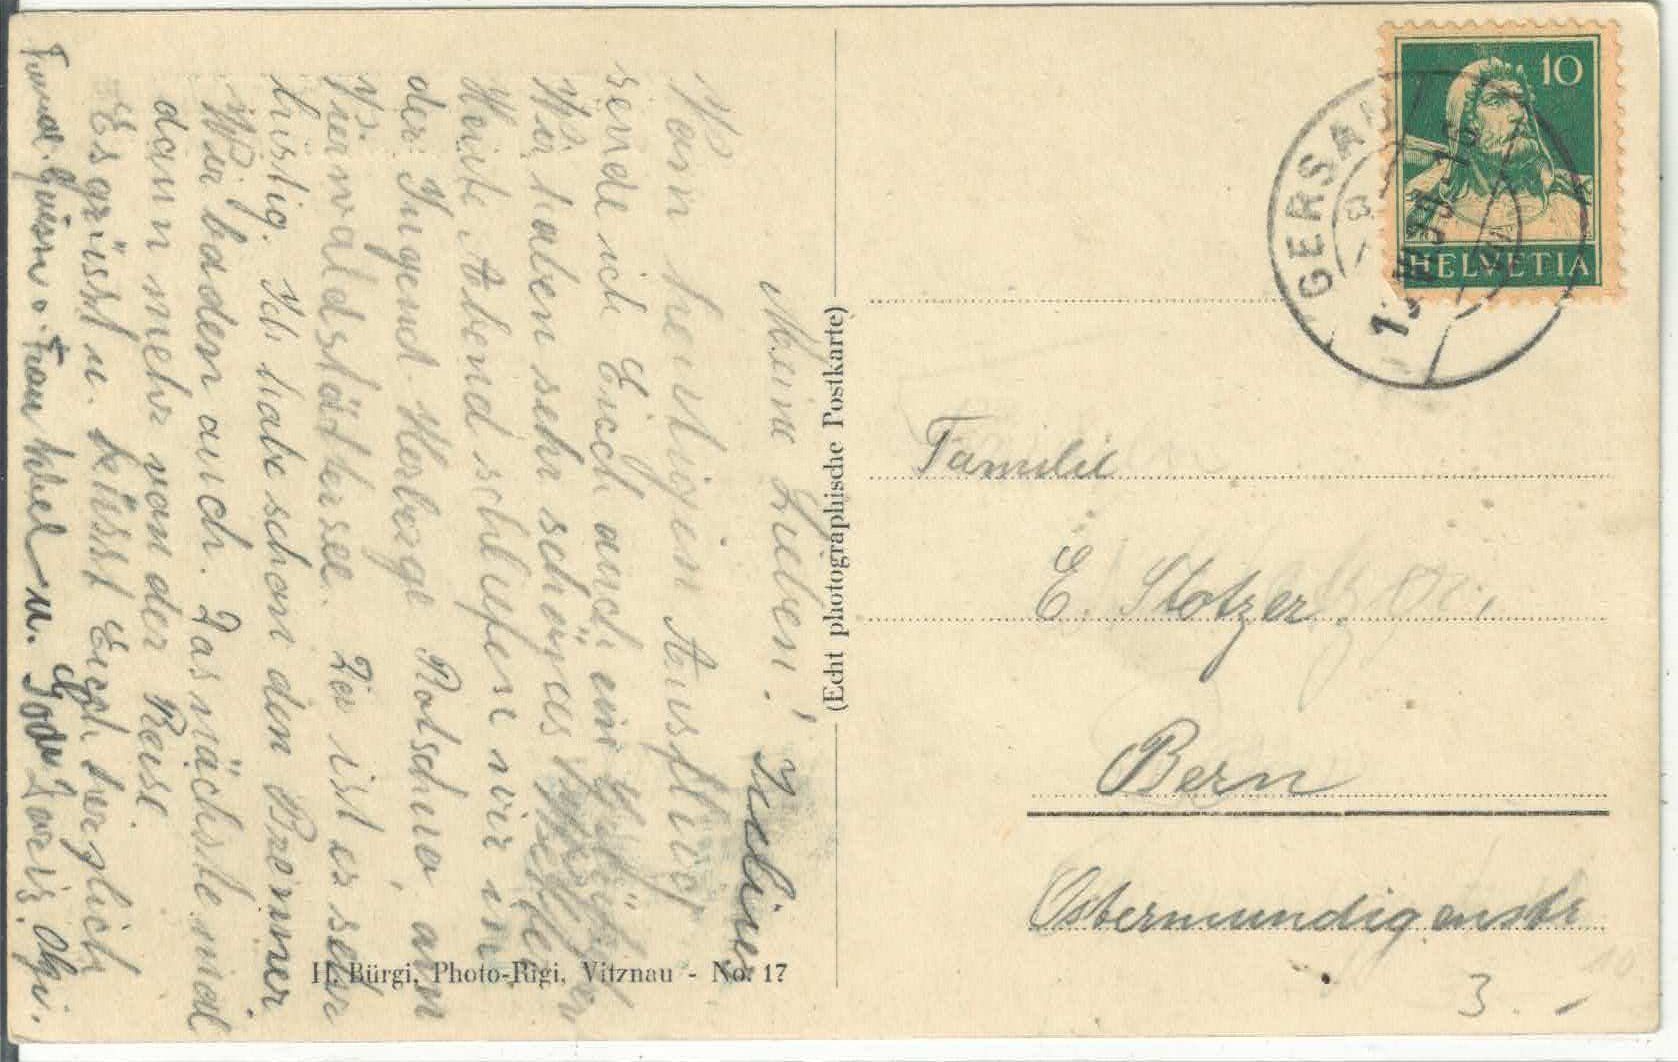 Meine Lieben!
Vom heutigen Ausflug
sende ich Euch auch ein
Wir haben sehr schönes Wetter
Heute Abend schlafen wir in
der Jugend Herberge Rotschuo am
Vierwaldstättersee. Da ist es sehr
lustig. Ich habe schon den
Wir baden auch. Das nächste mal
dann mehr von der Reise
Es grüsst u. küsst Euch herzlich
Frau u.
(Echt photographische Postkarte)
H. Bürgi, Photo-Rigi, Vitznau - No. 17
10
HELVETIA
GERSAU
Familie
E. Stotzer.
Bern
Ostermundigenstr
3. -